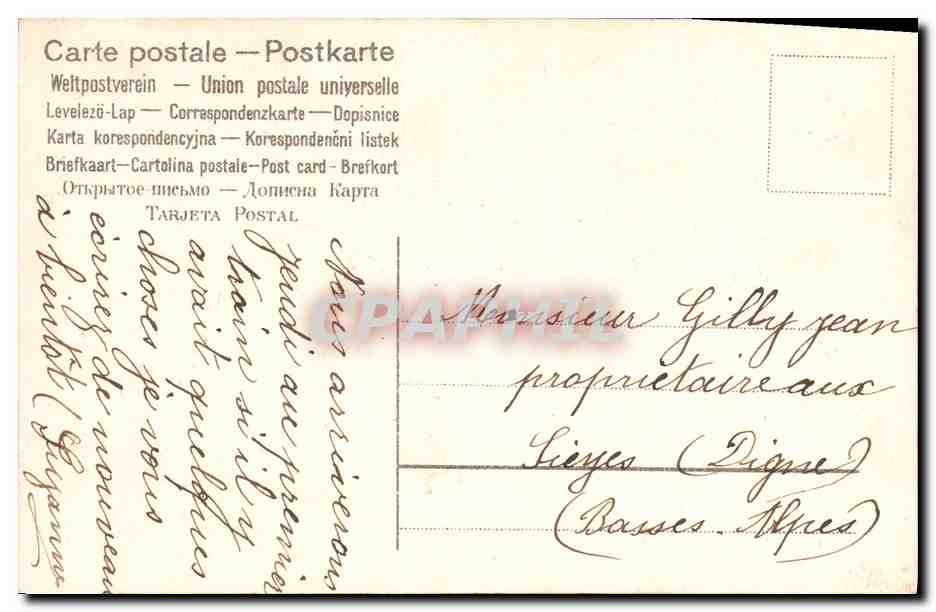 Carte postale — Postkarte
Weltpostverein — Union postale universelle
Levelezö-Lap — Correspondenzkarte — Dopisnice
Karta korespondencyjna — Korespondenčni listek
Briefkaart — Cartolina postale — Post card - Brefkort
Открытое письмо — Дописна Карта
TARJETA POSTAL
Nous arriverons
jeudi au premier
train si il y
avait quelques
choses je vous
écrirez de nouveau
à bientôt (Suzanne
CPAPHIL
Monsieur Gilly jean
propriétaire aux
Sieyes (Digne)
(Basses-Alpes)